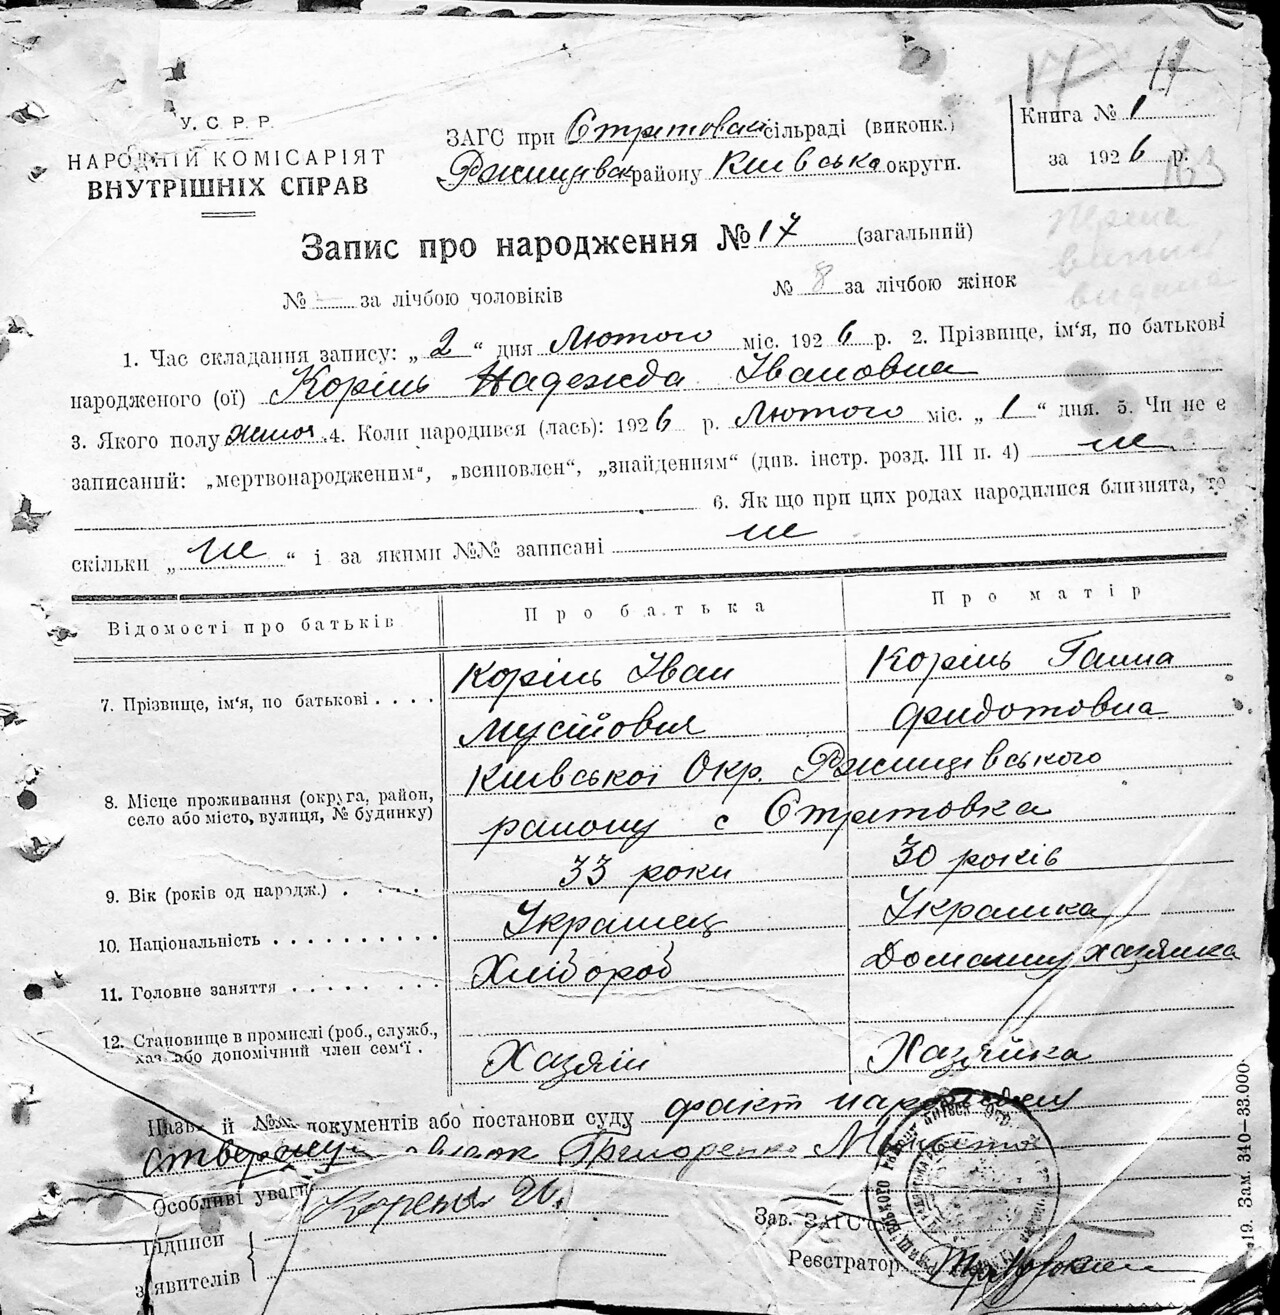 17 17
У.С.Р.Р.
НАРОДНІЙ КОМІСАРІЯТ
ВНУТРІШНІХ СПРАВ
ЗАГС при Стрітовській сільраді (виконк.)
Ржищівськ району Київська округи.
Книга № 1
за 1926 р.
163
перша
виписка
видана
Запис про народження № 17 (загальний)
№ — за лічбою чоловіків № 8 за лічбою жінок
1. Час складання запису: „2“ дня Лютого міс. 1926 р. 2. Прізвище, ім'я, по батькові
народженого (ої) Корінь Надежда Івановна
3. Якого полу жіноч. 4. Коли народився (лась): 1926 р. Лютого міс. „1“ дня. 5. Чи не є
записаний: „мертвонародженим“, „всиновлен“, „знайденням“ (див. інстр. розд. III п. 4) ні
6. Як що при цих родах народилися близнята, то
скільки „ні“ і за якими №№ записані ні
Відомості про батьків Про батька Про матір
7. Прізвище, ім'я, по батькові . . . . Корінь Іван Корінь Ганна
Федотовна
Київської Окр. Ржищівського
8. Місце проживання (округа, район,
село або місто, вулиця, № будинку) району с Стрітовка
9. Вік (років од народж.) . . . . . 33 роки 30 років
10. Національність . . . . . . . . . . Українец Українка
11. Головне заняття . . . . . . . . . Хлібороб Домашня хазяйка
12. Становище в промислі (роб., служб.,
хаз. або допомічний член сем'ї . Хазяїн Хазяйка
Назва й №№ документів або постанови суду факт народження
Григоренко
Особливі уваги
Підписи
заявителів
Корень И.
Зав. ЗАГС
Реєстратор
19. Зам. 340—33.000